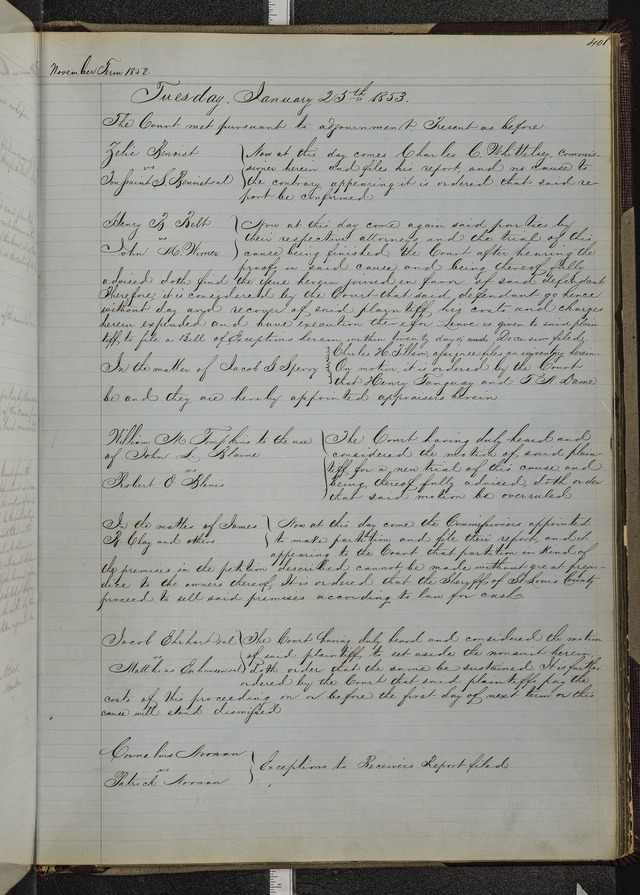 401
November Term 1852.
Tuesday, January 25th 1853.
The Court met pursuant to adjournment. Present as before.
Zelie Benoist
vs
Toussaint S. Benoist et al
Now at this day comes Charles C. Whittelsey, commis-
sioner herein and files his report, and no cause to
the contrary appearing it is ordered that said re-
port be confirmed
Henry B. Belt
vs
John M. Wimer
Now at this day come again said parties by
their respective attorneys and the trial of this
cause being finished the Court after hearing the
proofs in said cause and being thereof fully
advised doth find the issue herein joined in favor of said defendant
Therefore, it is considered by the Court that said defendant go hence
without day and recover of said plaintiff his costs and charges
herein expended and have execution therefor. Leave is given to said plain
tiff, to file a Bill of Exceptions herein within twenty days and filed
In the matter of Jacob S. Sperry
Charles H. assignee files an inventory herein.
On motion it is ordered by the Court
that Henry Tanguay and T. A. Dame
be and they are hereby appointed appraisers herein
William M Tompkins to the use
of John L Blaine
vs
Robert O Blenis
The Court having duly heard and
considered the motion of said plain-
tiff for a new trial of this cause and
being thereof fully advised doth order
that said motion be overruled
In the matter of James
R. Clay and others
Now at this day come the Commissioners appointed
to make partition and file their report, and it
appearing to the Court that partition in kind of
the premises in the petition described cannot be made without great preju-
dice to the owners thereof, It is ordered that the Sheriff of St Louis County
proceed to sell said premises according to law for cash.
Jacob Ehrhart et al
vs
Matthias
The Court having duly heard and considered the motion
of said plaintiffs to set aside the nonsuit herein
doth order that the same be sustained. It is further
ordered by the Court that said plaintiffs pay the
costs of this proceeding on or before the first day of next term or this
cause will stand dismissed
Cornelius Noonan
vs
Patrick Noonan
Exceptions to Receivers Report filed